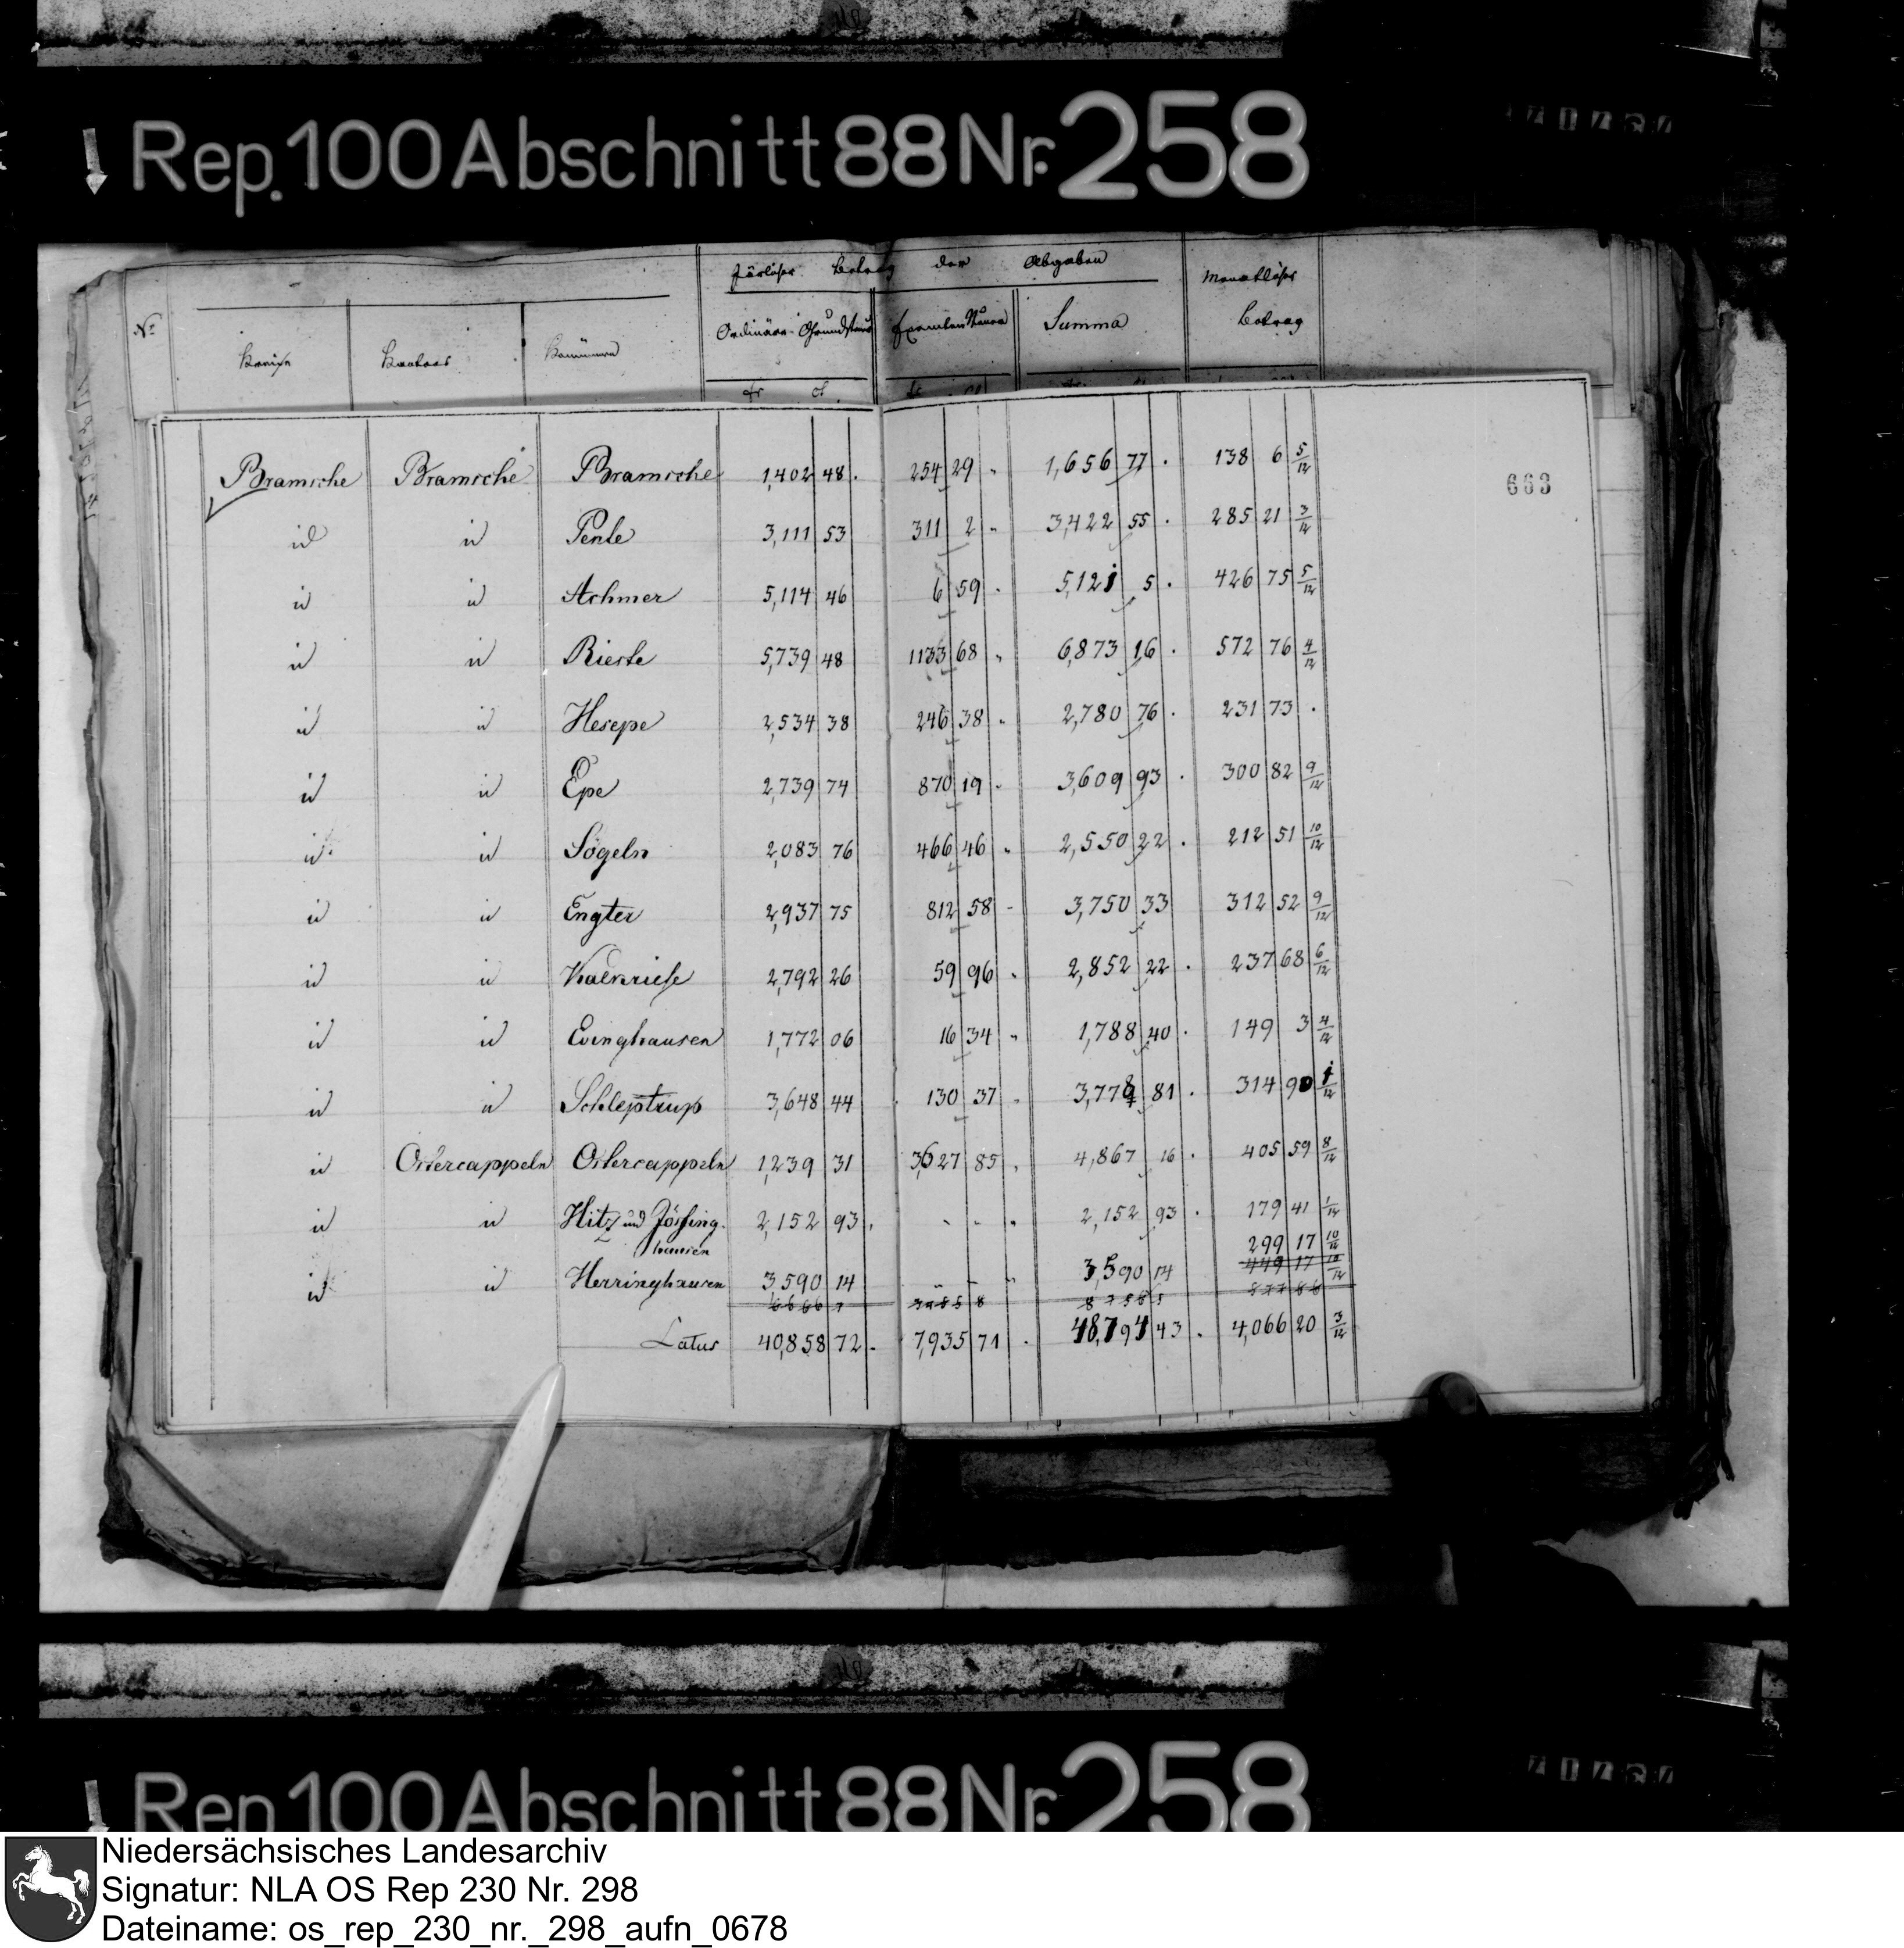 Rep. 100 Abschnitt 88 Nr. 258
Järlicher Betrag der Abgaben
Monatlicher Betrag
No
Kreise Kantons Kommunen Ordinäre Grundsteuer Exemten Steuer Summa
fr ct
663
Bramsche Bramsche Bramsche 1,402 48 . 254 29 " 1,656 77 . 138 6 5/12
id id Pente 3,111 53 311 2 " 3,422 55 . 285 21 3/12
id id Achmer 5,114 46 6 59 . 5,121 5 . 426 75 5/12
id id Rieste 5,739 48 1133 68 " 6,873 16 . 572 76 4/12
id id Hesepe 2,534 38 246 38 " 2,780 76 . 231 73 .
id id Epe 2,739 74 870 19 . 3,609 93 . 300 82 9/12
id id Sögeln 2,083 76 466 46 " 2,550 22 . 212 51 10/12
id id Engter 2,937 75 812 58 - 3,750 33 312 52 9/12
id id Kalkriese 2,792 26 59 96 . 2,852 22 . 237 68 6/12
id id Evinghausen 1,772 06 16 34 " 1,788 40 . 149 3 4/12
id id Schleptrup 3,648 44 130 37 . 3,778 81 . 314 90 1/12
id Ostercappeln Ostercappeln 1,239 31 3,627 85 , 4,867 16 . 405 59 8/12
id id Hitz und Jöstinghausen 2,152 93 . " " " 2,152 93 . 179 41 1/12
299 17 10/12
id id Herringhausen 3,590 14 " " " 3,590 14 449 17 10/12
Latus 40,858 72 - 7,935 71 . 48,794 43 . 4,066 20 3/12
Rep. 100 Abschnitt 88 Nr. 258
Niedersächsisches Landesarchiv
Signatur: NLA OS Rep 230 Nr. 298
Dateiname: os_rep_230_nr._298_aufn_0678